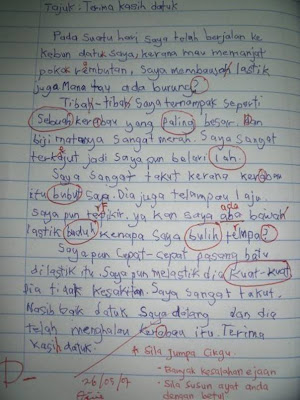 Tajuk : Terima kasih datuk
Pada suatu hari saya telah berjalan ke
kebun datuk saya, kerana mau memanjat
pokok rambutan. Saya membawak lastik
juga mana tau ada burung?
Tibah-tibah saya ternampak seperti
Sebuah kerabau yang paling besar dan
biji matanya sangat merah. Saya sangat
terkajut jadi saya pun belari lah.
Saya sangat takut kerana kerabau
itu bubut saya. Dia juga telampau laju.
saya pun tepikir, ya kan saya ada bawak
lastik paduh kenapa saya bulih telmpa?
Saya pun cepat-cepat pasang batu
di lastik itu. Saya pun melastik dia kuat-kuat
dia tidak kesakitan. Saya sangat takut.
Nasib baik datuk saya datang dan dia
telah menghalau kerabau itu. Terima
kasih datuk.
* Sila jumpa cikgu.
D-
- Banyak kesalahan ejaan
26/05/07
- Sila susun ayat anda
dengan betul